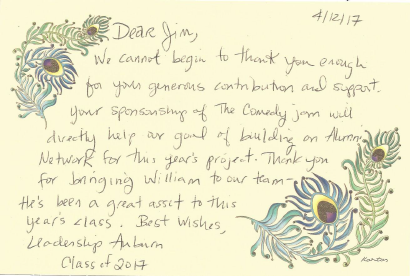 4/12/17
Dear Jim,
We cannot begin to thank you enough
for your generous contribution and support.
Your sponsorship of The Comedy jam will
directly help our goal of building an Alumni
Network for this year's project. Thank you
for bringing William to our team-
He's been a great asset to this
year's class. Best Wishes,
Leadership Auburn
Class of 2017